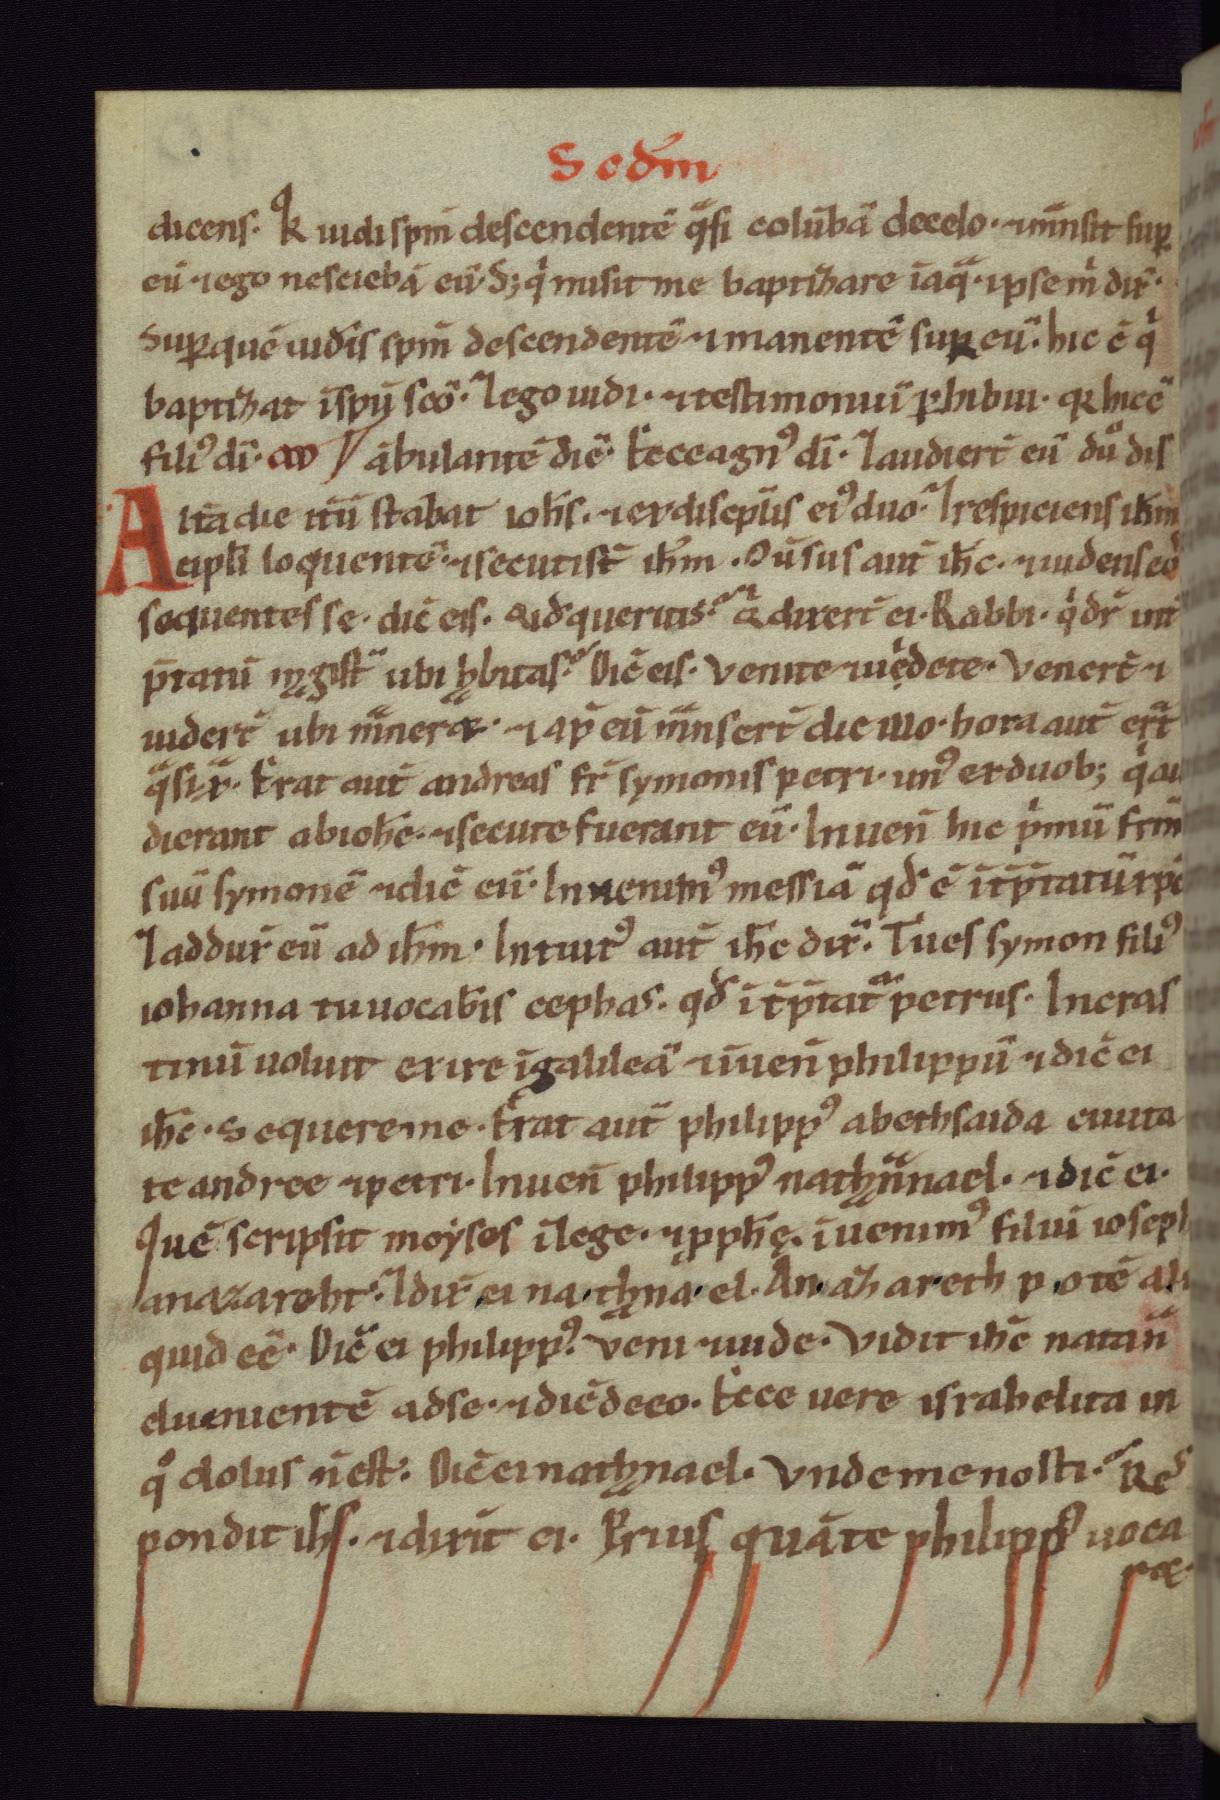 Scdm̄
dicens. Qꝛ uidi spm̄ descendentē q̄si colūbā decelo. ⁊ mansit suꝑ
eū ⁊ ego nesciebā eū. S; qͥ misit me baptizare i aq̄. ipse m̄ dix̄.
Suꝑ quē uid̄is spm̄ descendentē ⁊ manentē suꝑ eū. hic ē qͥ
baptizat i spū scō. ⁊ ego uidi. ⁊ testimoniū ꝑhibui. qꝛ hic ē
filiꝰ dī. ābulantē diē. Ecce agnꝰ dī. ⁊ audiert̄ eū duo dis
Altā die itū stabat ioh̄s. ⁊ ex discipl̄is eiꝰ duo. ⁊ respiciens ih̄m
cipl̄i loquentē. ⁊ secuti st̄ ih̄m. ꝯūsus aut̄ ih̄c. ⁊ uidens eos
sequentes se. dic̄ eis. Qid queritis. Q dixert̄ ei. Rabbi. qd̄ dr̄ int̄
p̄tatū mgist̄ ubi hbitas. Dic̄ eis. Venite ⁊ uidete. Venert̄ ⁊
uidert̄ ubi maneret. ⁊ ap̄ eū mansert̄ die illo. hora aut̄ erat
q̄si x. Erat aut̄ andreas fr̄ symonis petri. unꝰ ex duob; qͥ au
dierant ab ioh̄e. ⁊ secute fuerant eū. Inuen̄ hic pͥmū frm̄
suū symonē ⁊ dic̄ eū. Inuenimꝰ messiā qd̄ ē it̄p̄tatū xp̄c
⁊ addux̄ eū ad ih̄m. Intuitꝰ aut̄ ih̄c dix̄. Tu es symon filiꝰ
iohanna tu uocab̄is cephas. qd̄ it̄p̄tat̄ petrus. In cras
tinū uoluit exire i galileā ⁊ iuen̄ philippū ⁊ dic̄ ei
ih̄c. Sequere me. Erat aut̄ philippꝰ a bethsaida ciuita
te andree ⁊ petri. Inuen̄ philippꝰ nathanael. ⁊ dic̄ ei.
Quē scripsit moyses i lege. ⁊ pph̄ę. iuenimꝰ filiū ioseph
a nazareht. ⁊ dix̄ ei nathnael. A nazareth potē ali
quid eē. Dic̄ ei philippꝰ. Veni ⁊ uide. Vidit ih̄c natan̄
el uenientē ad se. ⁊ dic̄ de eo. Ecce uere israhelita in
qͦ dolus n̄ est. Dic̄ ei nathnael. Vnde me nosti. Res
pondit ih̄s. ⁊ dixit ei. Prius quā te philippꝰ uoca
ret.